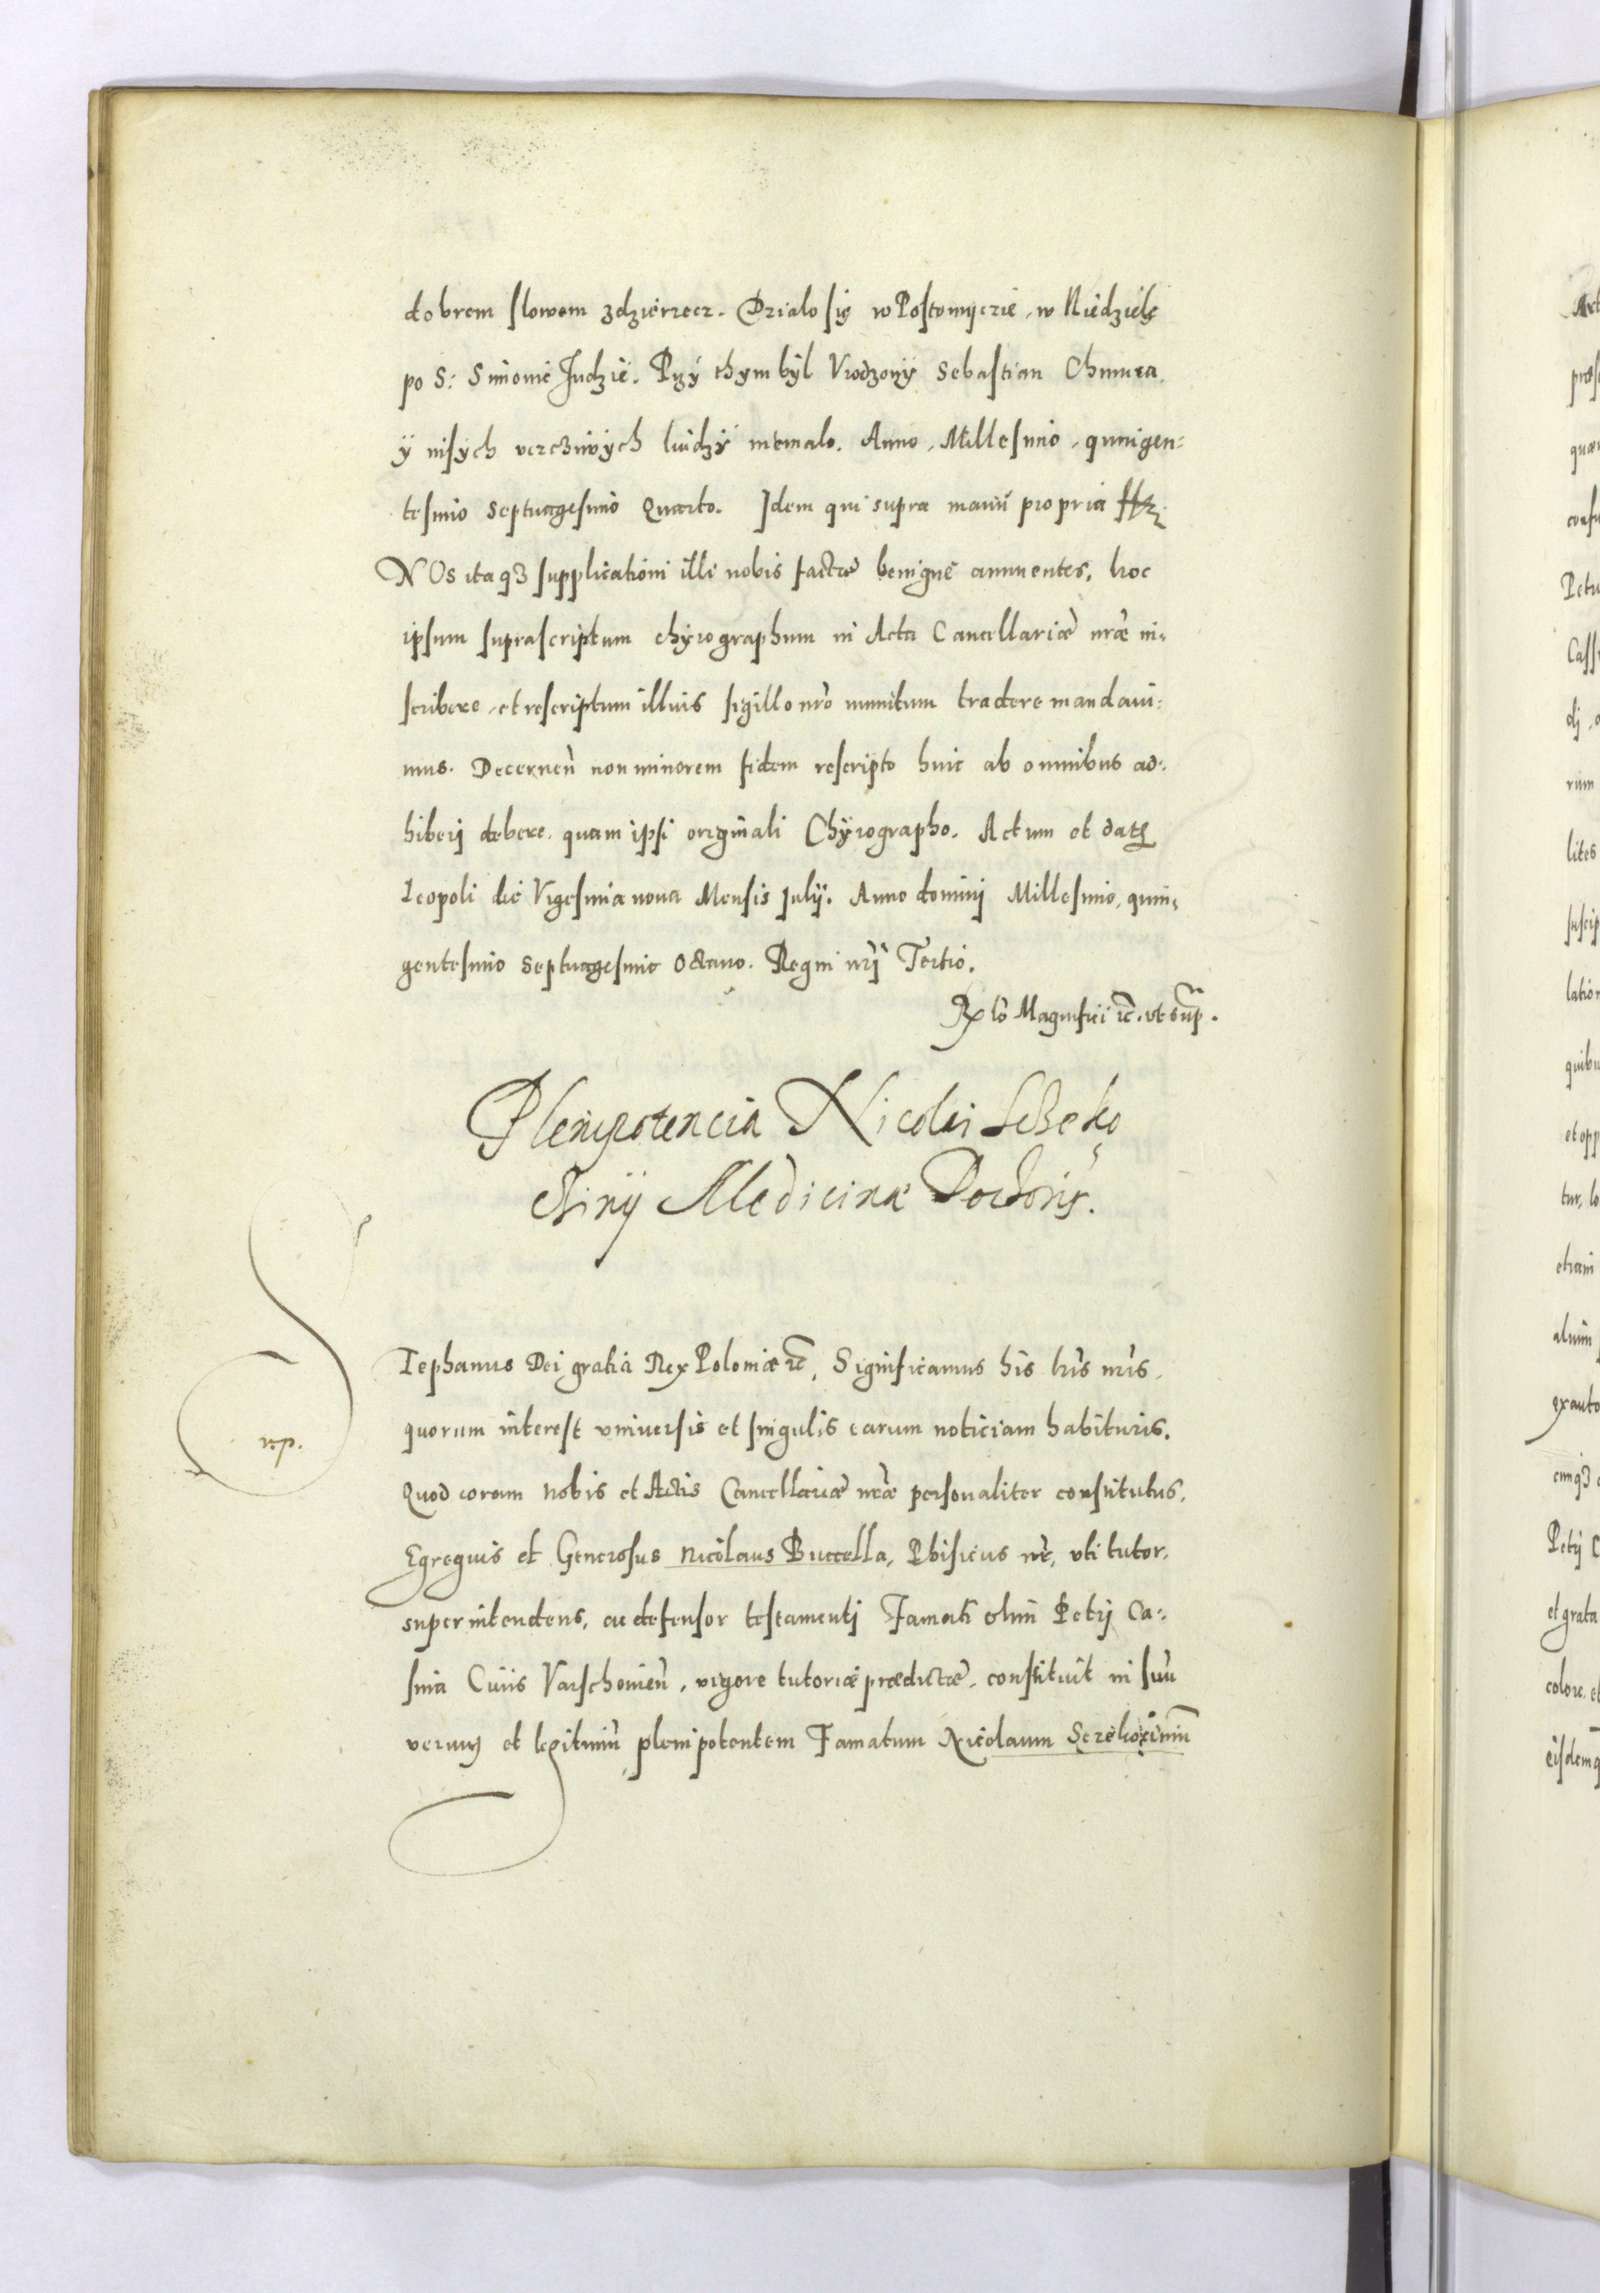 dobrem slowem zdzierzecz. Dzialo się w Postomyczie, w Niedzielę
po S: Simonie Judzie. Przÿ thym bÿl Vrodzonÿ Sebastian Chmura,
ÿ inszÿch vczcziwÿch ludzÿ niemalo. Anno, Millesimo, quingen:
tesimo Septuagesimo Quarto. Idem qui supra manu propria
NOs itaq3 supplicationi illi nobis factæ benigne annuentes, hoc
ipsum suprascriptum chÿrographum in Acta Cancellariæ nr̃æ in,
scribere, et rescriptum illius sigillo nr̃o munitum tradere mandaui:
mus. Decernen̄ non minorem fidem rescripto huic ab omnibus ad:
hiberj debere, quam ipsi originali Chÿrographo. Actum et dat
Leopoli die Vigesima nona Mensis Julij. Anno dominj Millesimo, quin,
gentesimo Septuagesimo Octauo. Regni nr̃j Tertio.
Rela͠o Magnifici ꝛc. vt sup̃.
Plenipotencia Nicolai
Medicinæ Doctoris.
Tephanus Dei gratia Rex Poloniæ ꝛc, Significamus his lr̃is nr̃is,
quorum interest vniuersis et singulis earum noticiam habituris.
rp.
Quod coram nobis et Actis Cancellariæ nr̃æ personaliter constitutus,
Egregius et Generosus Nicolaus Buccella, Phisicus nr̃, vti tutor,
superintendens, ac defensor testamentj Famati olim Petrj Ca:
sina Ciuis Varschouien̄, vigore tutoriæ prædictæ, constituit in suū
verum et legitimū plenipotentem Famatum Nicolaum